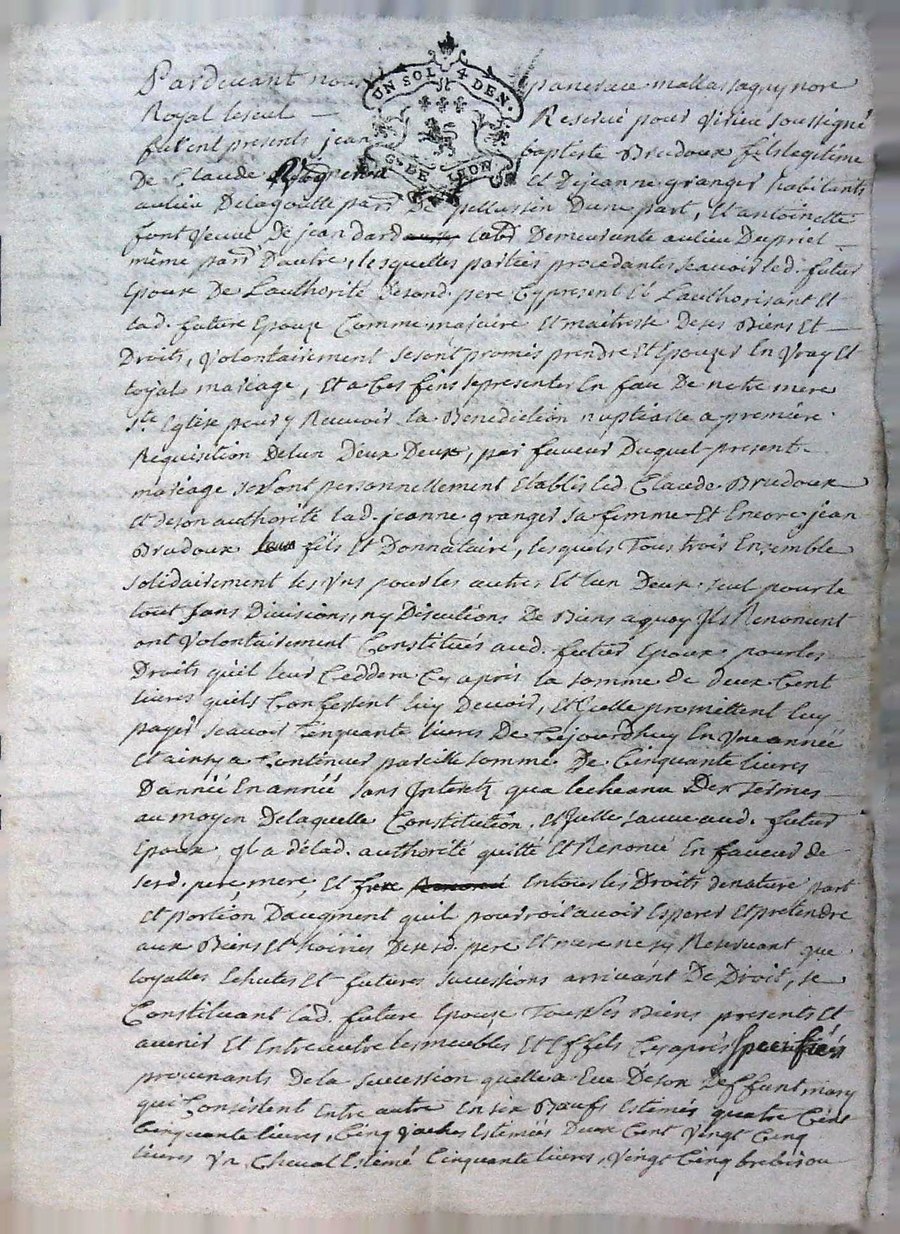 UN SOL 4 DEN.
G. DE LYON
Pardevant nou pancrace mallassagny nore
Royal Reservé pour virieu soussigné
furent presents jean baptiste Brudoux fils legitime
De Claude Et Dejeanne granger habitants
aulieu Delagoutte parr De pellussin Dune part, Et antoinette
font Veuve De jean Demeurante aulieu Dupriel
même parr Dautre, lesquelles parties procedantes scavoir led. futur
Epoux De Lauthorité desond. pere Cypresent Et Lauthorisant Et
lad. future Epouze Comme majeure Et maitresse Deses Biens Et
Droits, Volontairement sesont promis prendre Et Epouzer En Vray Et
loyal mariage, Et a Ces fins sepresenter En face De notre mere
ste Eglise pour y Recevoir la Benediction nuptialle a premiere
Requisition Delun Deux Deux, par faveur Duquel present
mariage sesont personnellement Etablis led. Claude Brudoux
Et deson authorité lad. jeanne granger sa femme Et Encore jean
Brudoux leur fils Et Donnataire, lesquels Tous trois Ensemble
solidairement les Vns pour les autres Et lun Deux seul pour le
tout sans Divisions, ny Discutions De Biens a quoy Ils Renoncent
ont Volontairement Constitués aud. futur Epoux pour les
Droits quil leur Ceddera Cy apres la somme de deux Cent
livres quils Confessent luy Devoir, Et Icelle promettent luy
payer scavoir Cinquante livres De Cejourdhuy En Vne année
Et ainsy a Continuer pareille somme De Cinquante livres
Dannée En année sans Interets qua lecheance Des Termes
au moyen Delaquelle Constitution Et Icelle sauve aud. futur
Epoux, Il a délad. authorité quitté Et Renoncé En faveur de
sesd. pere mere, Et Entous les Droits denature part
Et portion Daugment quil pourroit avoir Esperer Et pretendre
aux Biens Et hoiries Desesd. pere Et mere ne sy Reservant que
loyalles Echutes Et futures successions arrivant De Droit, se
Constituant lad. future Epouze Tous ses Biens presents Et
avenir Et Entre autre les meubles Et Effets Cy apres specifiés
provenants de la succession quelle a Eue Deson Deffunt mary
qui Consistent Entre autre En six Bœufs Estimés quatre Cent
Cinquante livres, Cinq vaches Estimées Deux Cent Vingt Cinq
livres Vn Cheval Estimé Cinquante livres, Vingt Cinq brebis ou